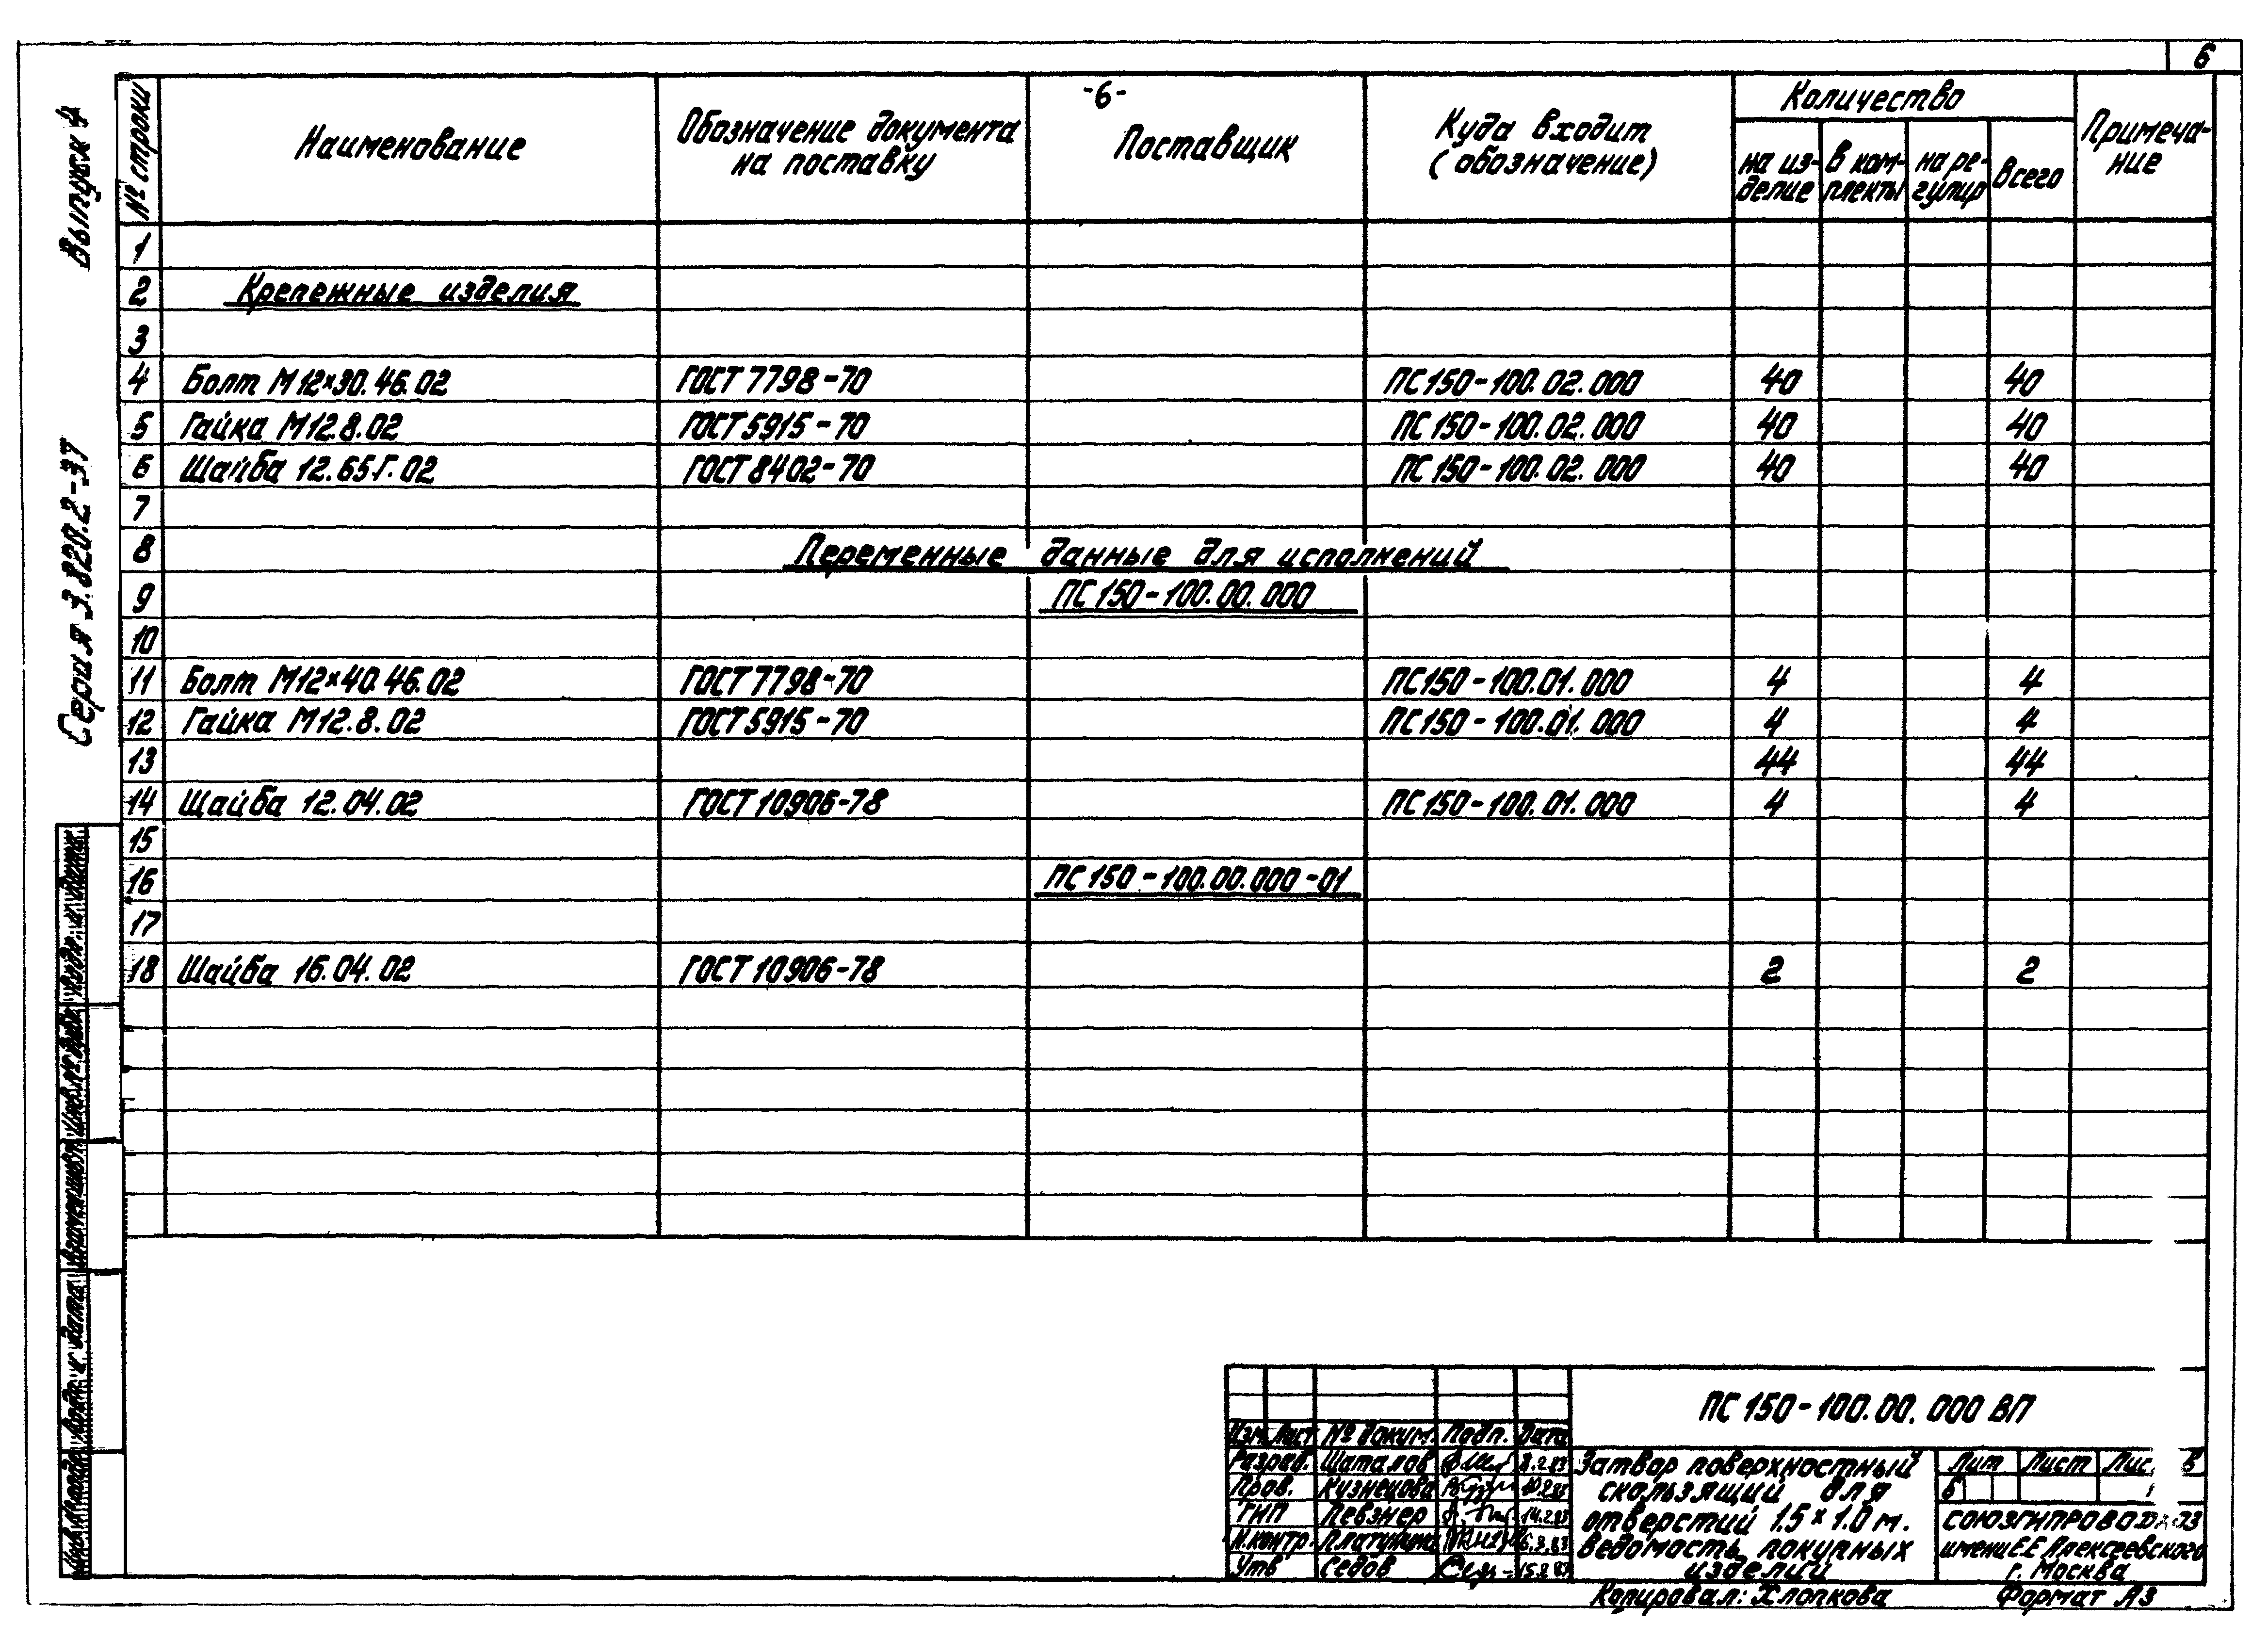 6
-6-
Выпуск 4
Серия 3.820.2-37
№ строки
Наименование
Обозначение документа
на поставку
Поставщик
Куда входит
(обозначение)
Количество
на из-
делие
в ком-
плекты
на ре-
гулир
Всего
Примеча-
ние
1
2 Крепежные изделия
3
4 Болт М12×30.46.02 ГОСТ 7798-70 ПС150-100.02.000 40 40
5 Гайка М12.8.02 ГОСТ 5915-70 ПС150-100.02.000 40 40
6 Шайба 12.65Г.02 ГОСТ 8402-70 ПС150-100.02.000 40 40
7
8 Переменные данные для исполнений
9 ПС150-100.00.000
10
11 Болт М12×40.46.02 ГОСТ 7798-70 ПС150-100.01.000 4 4
12 Гайка М12.8.02 ГОСТ 5915-70 ПС150-100.01.000 4 4
13 44 44
14 Шайба 12.04.02 ГОСТ 10906-78 ПС150-100.01.000 4 4
15
16 ПС150-100.00.000-01
17
18 Шайба 16.04.02 ГОСТ 10906-78 2 2
ПС150-100.00.000 ВП
Изм. Лист № докум. Подп. Дата
Разраб. Шаталов 8.2.83
Пров. Кузнецова
ГИП Певзнер 14.2.83
Н.контр. Платунина
Утв Седов 15.2.83
Затвор поверхностный
скользящий для
отверстий 1.5×1.0 м.
Ведомость покупных
изделий
Лит Лист
Б
СОЮЗГИПРОВОДХОЗ
имени Е.Е Алексеевского
г. Москва
Копировал: Хлопкова Формат А3